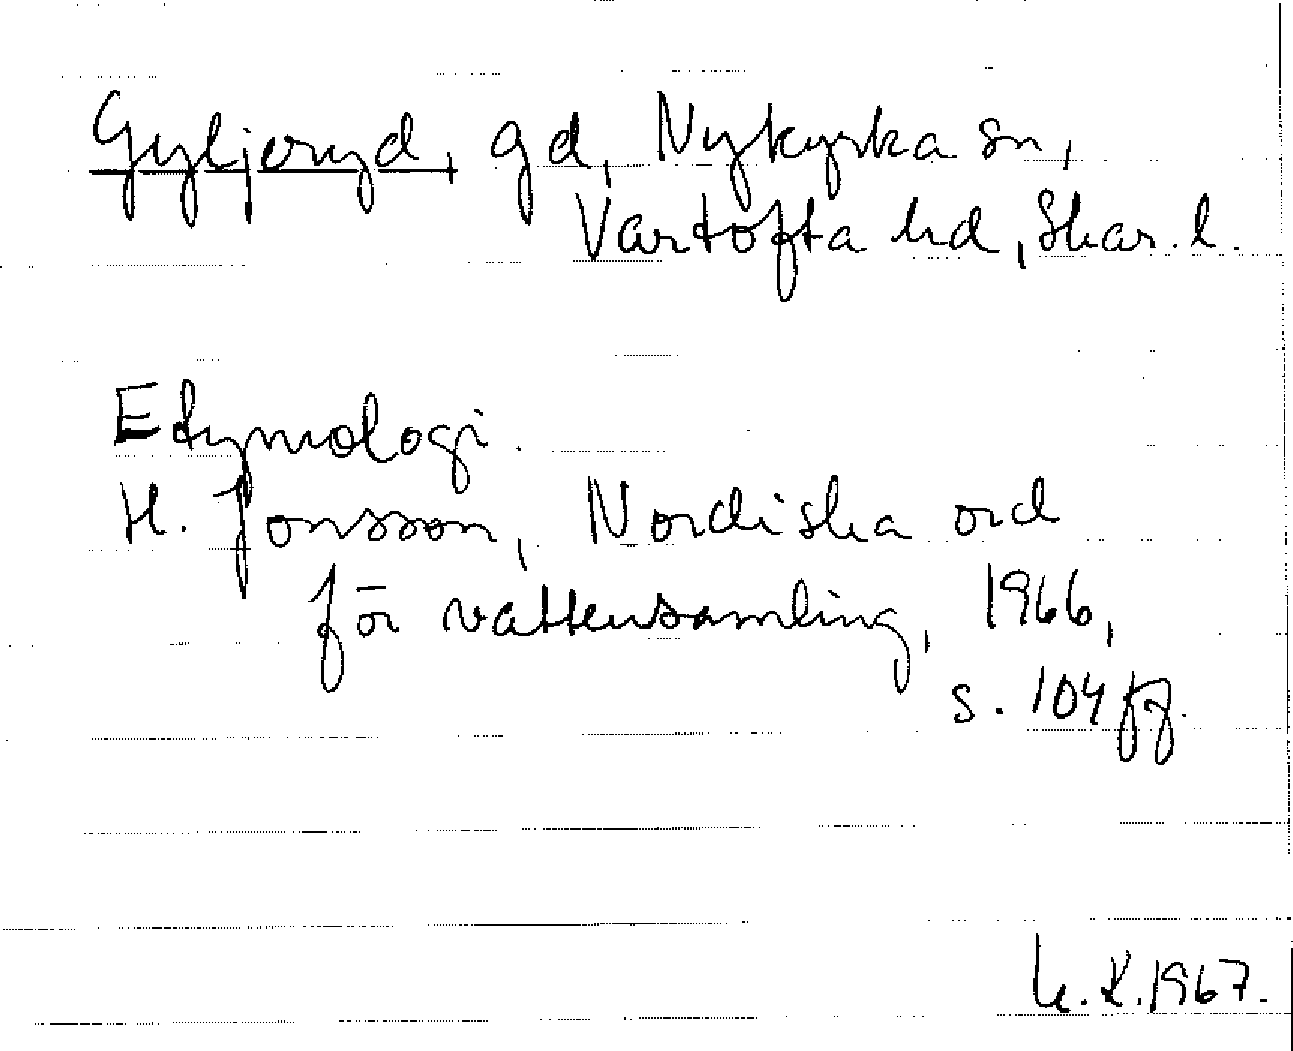 Gyljeryd, gd, Nykyrka sn,
Vartofta hd, Skar. l.
Etymologi.
H. Jonsson, Nordiska ord
för vattensamling, 1966,
s. 104 ff.
K. 1967.